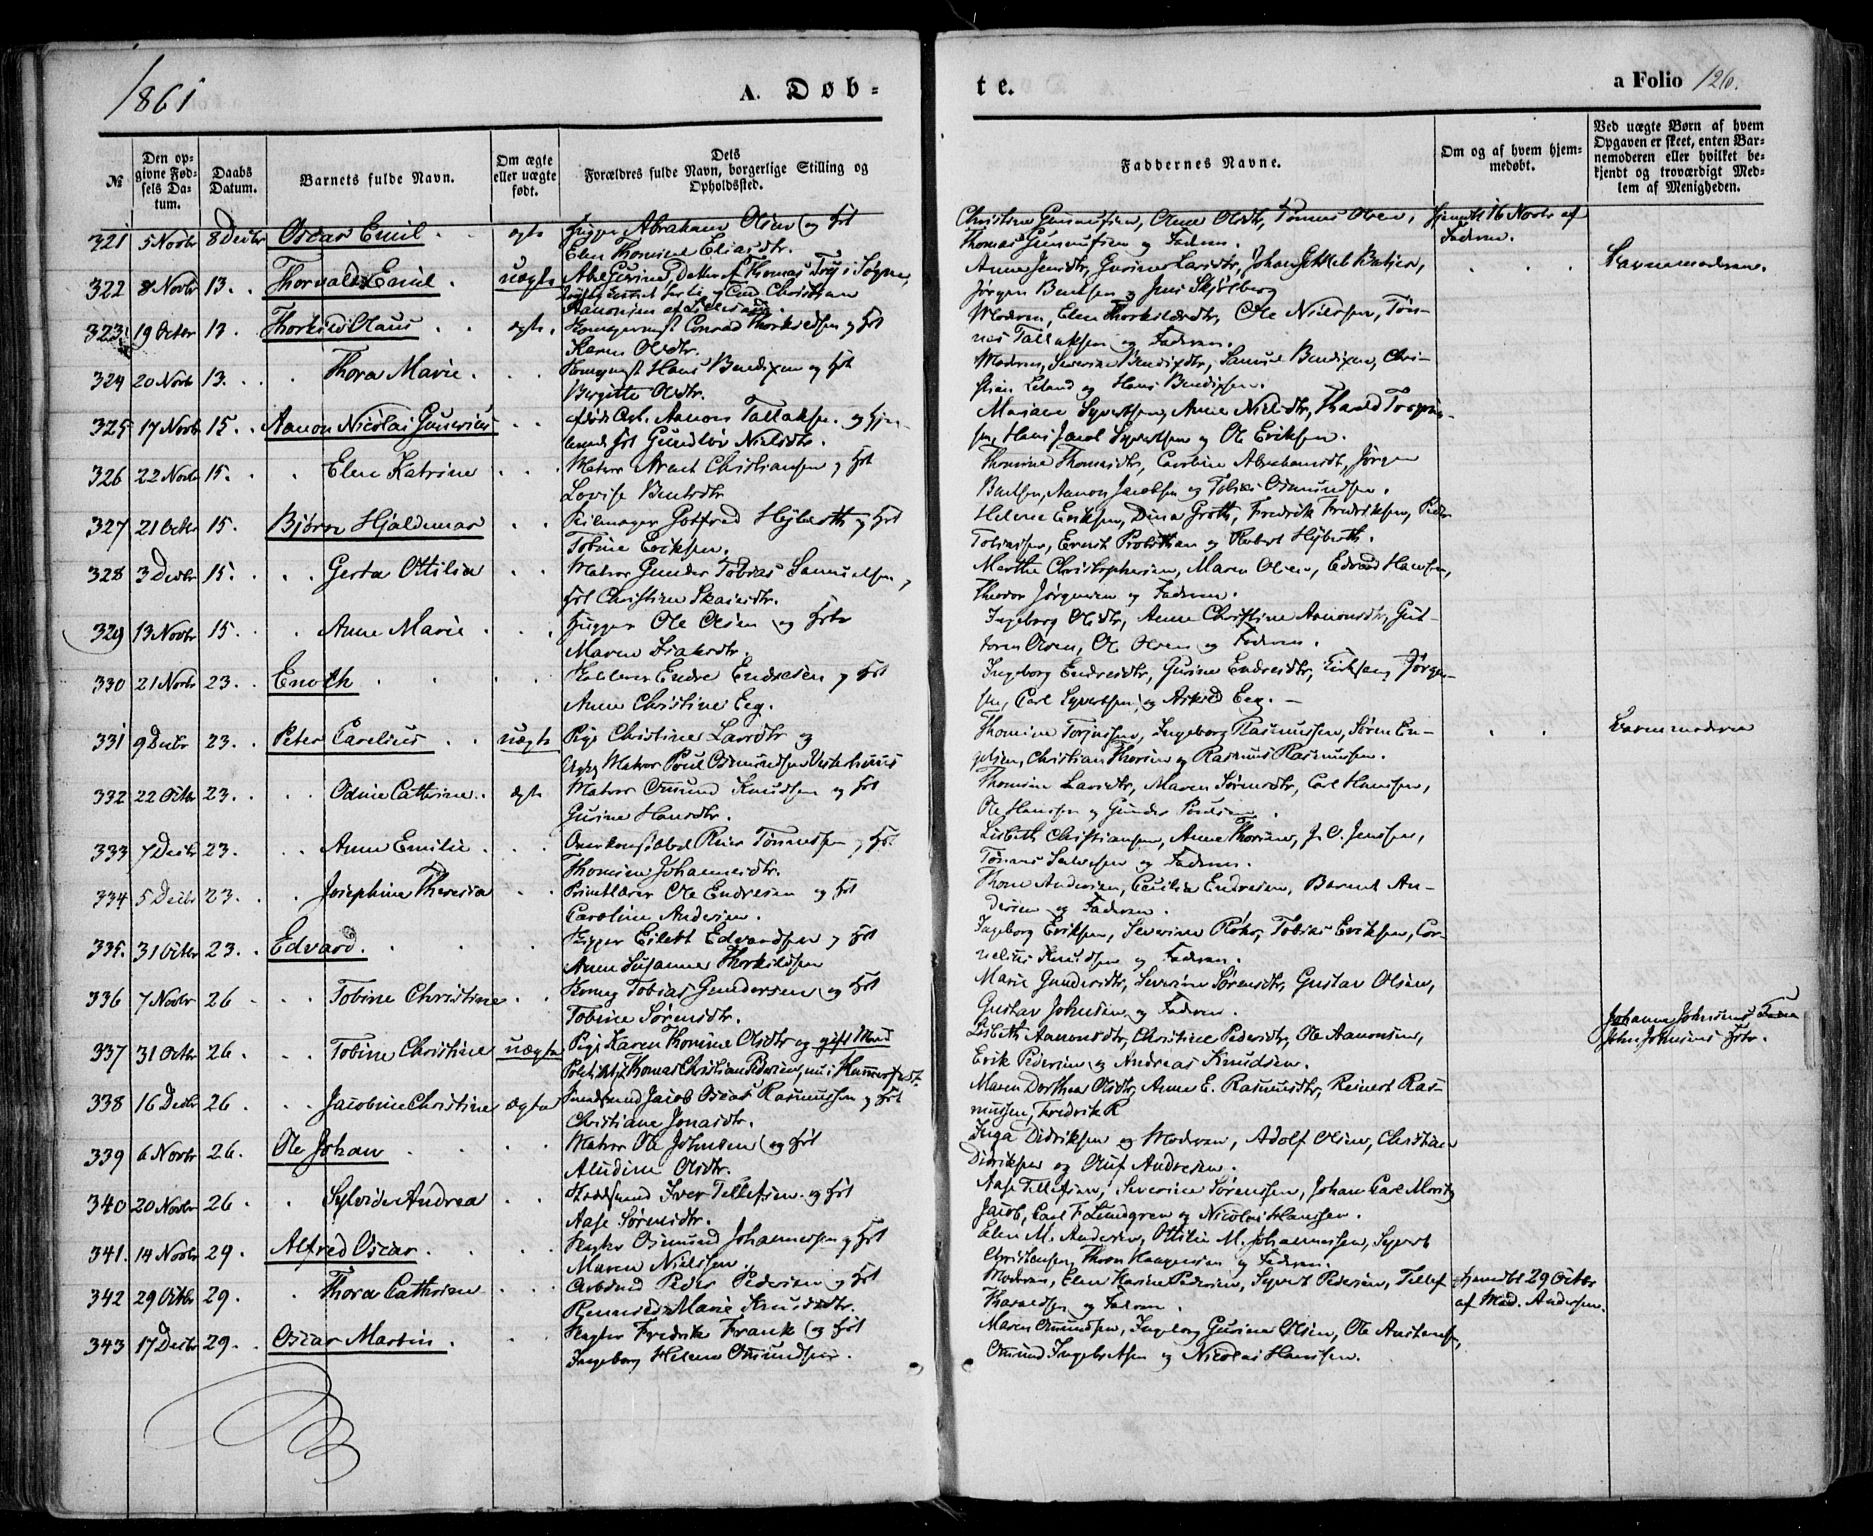 1861
A. Døb-
te.
a Folio 126.
№
Den op-
givne Fød-
sels Da-
tum.
Daabs
Datum.
Barnets fulde Navn.
Om ægte
eller uægte
født.
Dets
Forældres fulde Navn, borgerlige Stilling og
Opholdssted.
Faddernes Navne.
Om og af hvem hjem-
medøbt.
Ved uægte Børn af hvem
Opgaven er skeet, enten Bar-
nemoderen eller hvilket be-
kjendt og troværdigt Med-
lem af Menigheden.
321 5 Novbr 8 Decbr Oscar Emil ægte Hugger Abraham Olsen og Hst Olene Olsdtr, Tønnes Olsen, hjemdbt 16 Novbr af
Elen Thomine Eliasdtr. Thomas og Faderen. Faderen.
322 8 Novbr 13. Thorvald Emil uægte Thomas i Søgne, Anne Jensdtr, Barnemoderen.
Christian Jørgen Bentsen og Jens Skjølberg
Aanonsen
323 19 Octbr 13. Thorkild Olaus ægte Conrad Thorkildsen og Hst Moderen, Elen Thorkildsdtr, Ole Nielsen, Tøn-
Karen Olsdtr. nes Tallaksen og Faderen.
324 20 Novbr 13. Thora Marie Hans Bendixen og Hst Moderen, Severine Bendixdtr, Samuel Bendixen, Chri-
Birgitte Olsdtr. stian Leland og Hans Bendixsen.
325 17 Novbr 15. Aanon Nicolai Aanon Tallaksen og Mariane Syvertsen, Anne Nielsdtr, Harald
Hst Gundlør Nielsdtr. Hans Jacob Syvertsen og Ole Eriksen.
326 22 Novbr 15. Elen Katrine Matros Arent Christiansen og Hst Thomine Thomasdtr, Caroline Abrahamsdtr, Jørgen
Lovise Bentsdtr Bentsen, Aanon Jacobsen og Tobias Osmundsen.
327 21 Octbr 15. Bjørn Hjaldemar Seilmager Gotfred Hejberth og Hst Helene Eriksen, Dina Groth, Fredrik Fredriksen, Peder
Tobine Eriksen. Tobiassen, Ernst og Robert Hejberth.
328 3 Decbr 15. Gerta Ottilia Matros Gunder Tobias Samuelsen, Marthe Christophersen, Maren Olsen, Edvard Hansen,
Hst Christine Theodor Jørgensen og Faderen.
329 13 Novbr 15. Anne Marie Hugger Ole Olsen og Hst Ingeborg Olsdtr, Anne Christine Aanonsdtr, Gut-
Maren Isaksdtr. torm Olsen, Ole Olsen og Faderen.
330 21 Novbr 23. Enoch Endre Endresen og Hst Ingeborg Endresdtr, Gurine Endresdtr, Jørgen-
Anne Christine Eeg. sen, Carl Syvertsen, og Eeg.
331 9 Decbr 23. Peter Carelius uægte Pige Christine Larsdtr og Thomine Ingeborg Rasmussen, Søren En- Barnemoderen
Matros Poul Osmundsen Vesterhuus gelsen, Christian Thorsen og Rasmus Rasmussen.
332 22 Octbr 23. Odine Cathrine. ægte Matros Osmund Knudsen og Hst Thomine Larsdtr, Maren Sørensdtr, Carl Hansen,
Gurine Hansdtr. Ole Hansen og Gunder Poulsen.
333 7 Decbr 23. Anne Emilie Reier Tønnesen og Hst Lisbeth Christiansen, Anne Thorsen, J. C. Jensen,
Thomine Johannesdtr. Tønnes Salvesen og Faderen.
334 5 Decbr 23. Josephine Theresia Ole Endresen og Hst Andersen, Cecilia Endresen, Bernt An-
Caroline Andersen. dersen og Faderen.
335. 31 Octbr 23. Edvard. Hugger Eilert Edvardsen og Hst Ingeborg Eriksen, Severine Tobias Eriksen, Cor-
Anne Susanne Thorkildsen nelius Knudsen og Faderen.
336 7 Novbr 26 Tobine Christine Tobias Gundersen og Hst Marie Gundersdtr, Severine Sørensdtr, Gustav Olsen,
Tobine Sørensdtr. Gustav Johnsen og Faderen.
337 31 Octbr 26. Tobine Christine uægte Pige Karen Thomine Olsdtr og gift Mand Lisbeth Aanonsdtr, Christine Pedersdtr, Ole Aanonsen, Johanne Johnsens
Thomas Christian Pedersen, nu i Hammerfest. Erik Pedersen og Andreas Knudsen. John Johnsens Hstr.
338 16 Decbr 26. Jacobine Christine ægte Jacob Oscar Rasmussen og Hst Maren Dorthea Olsdtr, Anne E. Rasmusdtr, Reinert Ras-
Christiane Jonasdtr. mussen, Fredrik R
339 6 Novbr 26. Ole Johan Matros Ole Johnsen og Hst Inga Didriksen og Moderen, Adolf Olsen, Christian
Aludine Olsdtr. Didriksen og Oluf Andresen.
340 20 Novbr 26 Sylvide Andrea Iver Tellefsen og Hst Aase Tellefsen, Severine Sørensen, Johan Carl Moritz
Aase Sørensdtr. Jacob, Carl F. Lundgren og Nicolai Hansen.
341. 14 Novbr 29. Alfred Oscar Osmund Johannessen og Hst Elen M. Andersen, Ottilie M. Johannessen, Syvert
Maren Nielsen. Christensen, og Faderen.
342 29 Octbr 29. Thora Cathrine Arbmd Peder Pedersen og Hst Moderen, Elen Karine Pedersen, Syvert Pedersen, Tellef hjemdbt 29 Octbr
Marie Knudsdtr. Haraldsen og Faderen. af Mad. Andersen.
343 17 Decbr 29. Oscar Martin Fredrik Frank og Hst Maren Osmundsen, Ingeborg Gurine Olsen, Ole Austensen,
Ingeborg Helene Osmundsen. Osmund Ingebretsen og Nicolai Hansen.